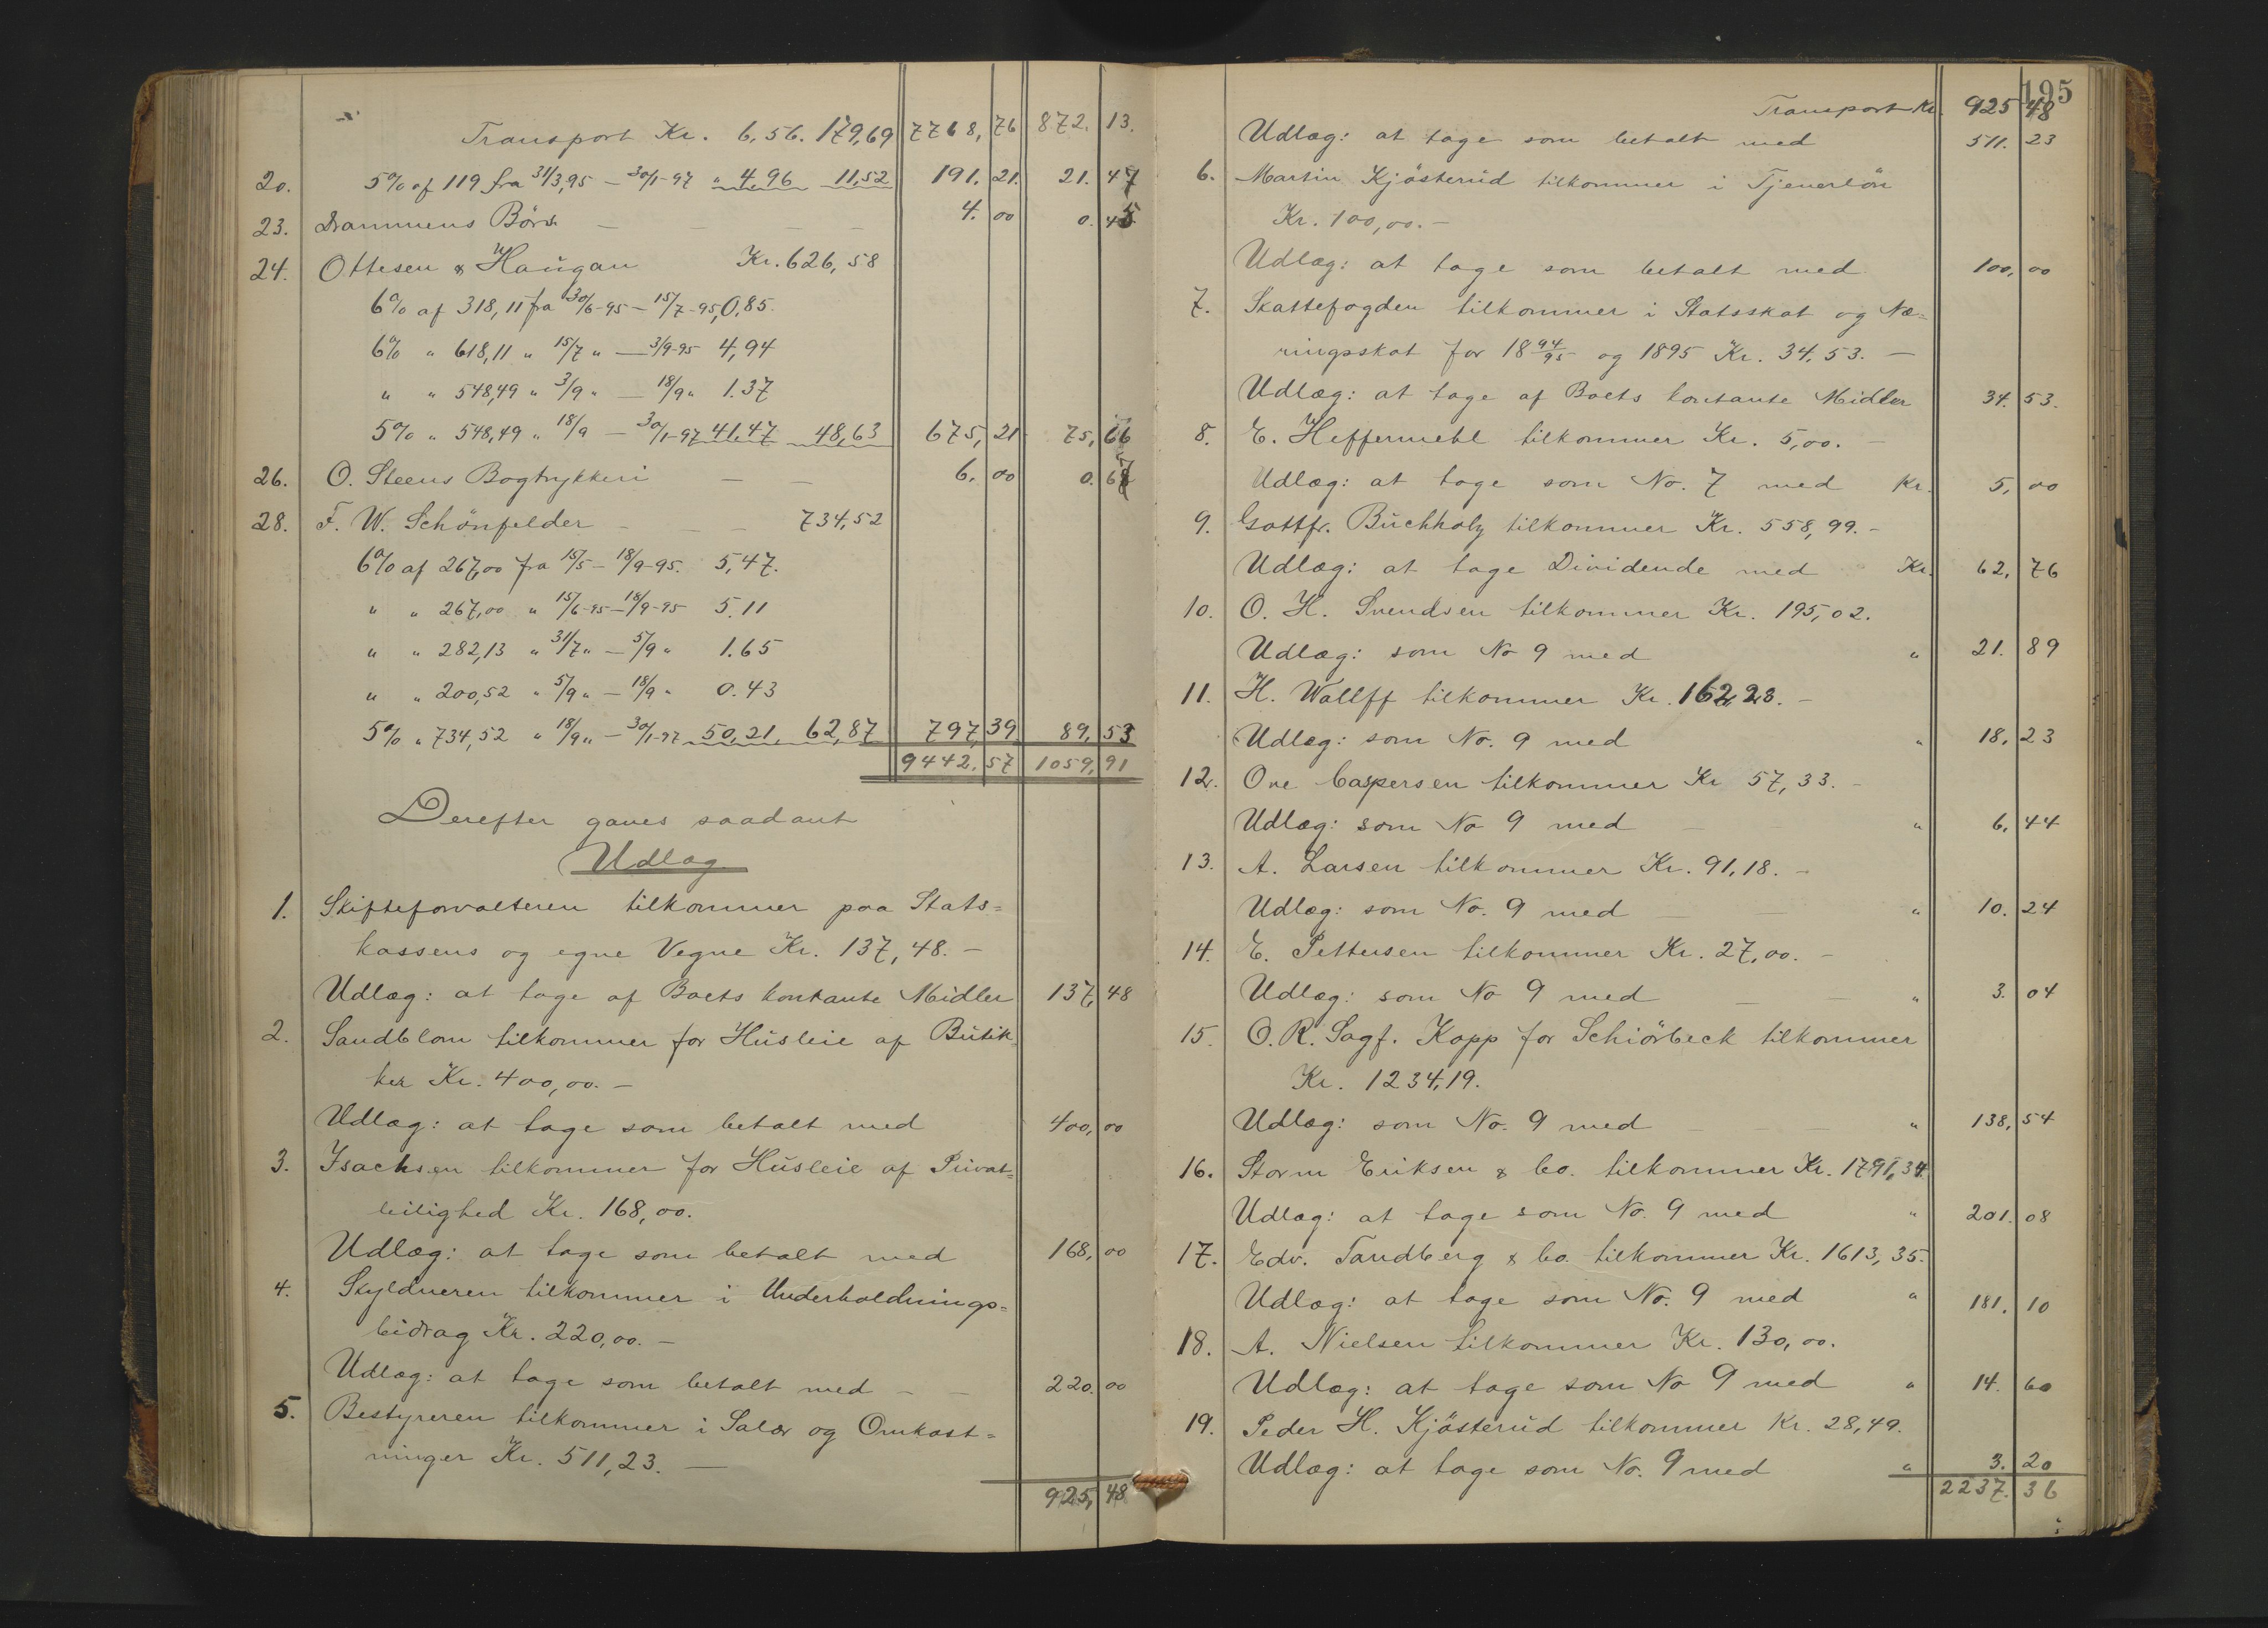 Transport Kr. 6,56. 179,69 7768, 76 872. 13.
20. 5% af 119 fra 31/3,95 – 30/1-97 " 4,96 11,52 191. 21. 21. 47
23. Drammens Börs – – – – 4. 00 0. 45
24. Ottesen & Haugan Kr. 626,58
6% af 318,11 fra 30/6-95 – 15/7-95, 0,85.
6% " 618,11 " 15/7 " – 3/9-95 4,94
" " 548,49 " 3/9 " – 18/9 " 1.37
5% " 548,49 " 18/9 – 30/1-97 41.47 48,63 675, 21 75, 66
26. O. Steens Bogtrykkeri – – 6. 00 0. 67
28. F. W. Schönfelder – – – 734,52
6% af 267,00 fra 15/5 – 18/9-95. 5,47.
" " 267,00 " 15/6-95 – 18/9-95 5.11
" " 282,13 " 31/7 " – 5/9 " 1.65
" " 200,52 " 5/9 " – 18/9 " 0.43
5% " 734,52 " 18/9 " – 30/1-97 50,21. 62,87 797, 39 89, 53
9442. 57 1059, 91
Derefter gaves saadant
Udlæg
1. Skifteforvalteren tilkommer paa Stats=
kassens og egne Vegne Kr. 137,48. –
Udlæg: at tage af Boets kontante Midler 137, 48
2. Sandblom tilkommer for Husleie af Butik
ker Kr. 400,00. –
Udlæg: at tage som betalt med 400, 00
3. Isachsen tilkommer for Husleie af Privat=
leilighed Kr. 168,00.
Udlæg: at tage som betalt med 168, 00
4. Skyldneren tilkommer i Underholdnings=
bidrag Kr. 220,00. –
Udlæg: at tage som betalt med – – 220. 00
5. Bestyreren tilkommer i Salær og Omkost=
ninger Kr. 511,23. –
925, 48
195
Transport Kr. 925 48
Udlæg: at tage som betalt med 511. 23
6. Martin Kjösterud tilkommer i Tjenerlön
Kr. 100,00. –
Udlæg: at tage som betalt med 100, 00
7. Skattefogden tilkommer i Statsskat og Næ=
ringsskat for 18 94/95 og 1895 Kr. 34.53. –
Udlæg: at tage af Boets kontante Midler 34. 53.
8. E. Heffermehl tilkommer Kr. 5,00. –
Udlæg: at tage som No. 7 med Kr. 5, 00
9. Gottfr. Buchholz tilkommer Kr. 558,99. –
Udlæg: at tage Dividende med Kr. 62, 76
10. O. H. Svendsen tilkommer Kr. 195,02.
Udlæg: som No 9 med " 21. 89
11. H. Wallff tilkommer Kr. 162,23. –
Udlæg: som No. 9 med " 18, 23
12. Ove Caspersen tilkommer Kr 57,33. –
Udlæg: som No 9 med – " 6, 44
13. A. Larsen tilkommer Kr. 91,18. –
Udlæg: som No. 9 med – – " 10. 24
14. E. Pettersen tilkommer Kr. 27,00. –
Udlæg: som No 9 med – – " 3. 04
15. O. R. Sagf. Kopp for Schiörbeck tilkommer
Kr. 1234,19.
Udlæg: som No. 9 med – – " 138, 54
16. Storm Eriksen & Co. tilkommer Kr. 1791,34
Udlæg: at tage som No. 9 med " 201. 08
17. Edv. Tandberg & Co. tilkommer Kr. 1613,35.
Udlæg: at tage som No. 9 med " 181. 10
18. A. Nielsen tilkommer Kr. 130,00.
Udlæg: at tage som No 9 med " 14. 60
19. Peder H. Kjösterud tilkommer Kr. 28,49.
Udlæg: at tage som No. 9 med " 3. 20
2237. 36